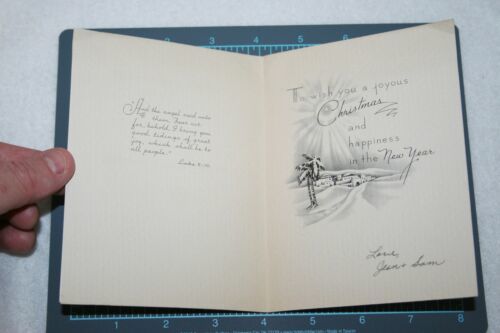 And the angel said unto
them, Fear not,
for, behold, I bring you
good tidings of great
joy, which shall be to
all people."
Luke 2:10
To wish you a joyous
Christmas
and
happiness
in the New Year
Love,
Jean & Sam
1 2 3 4 5 6 7 8